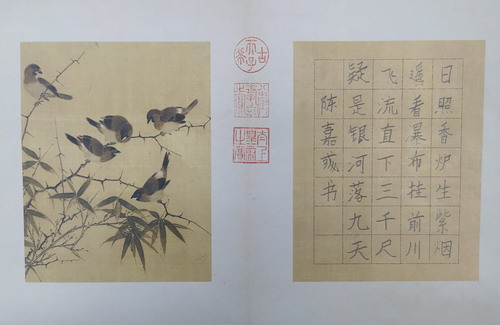 日照香炉生紫烟
遥看瀑布挂前川
飞流直下三千尺
疑是银河落九天
陈嘉彧书